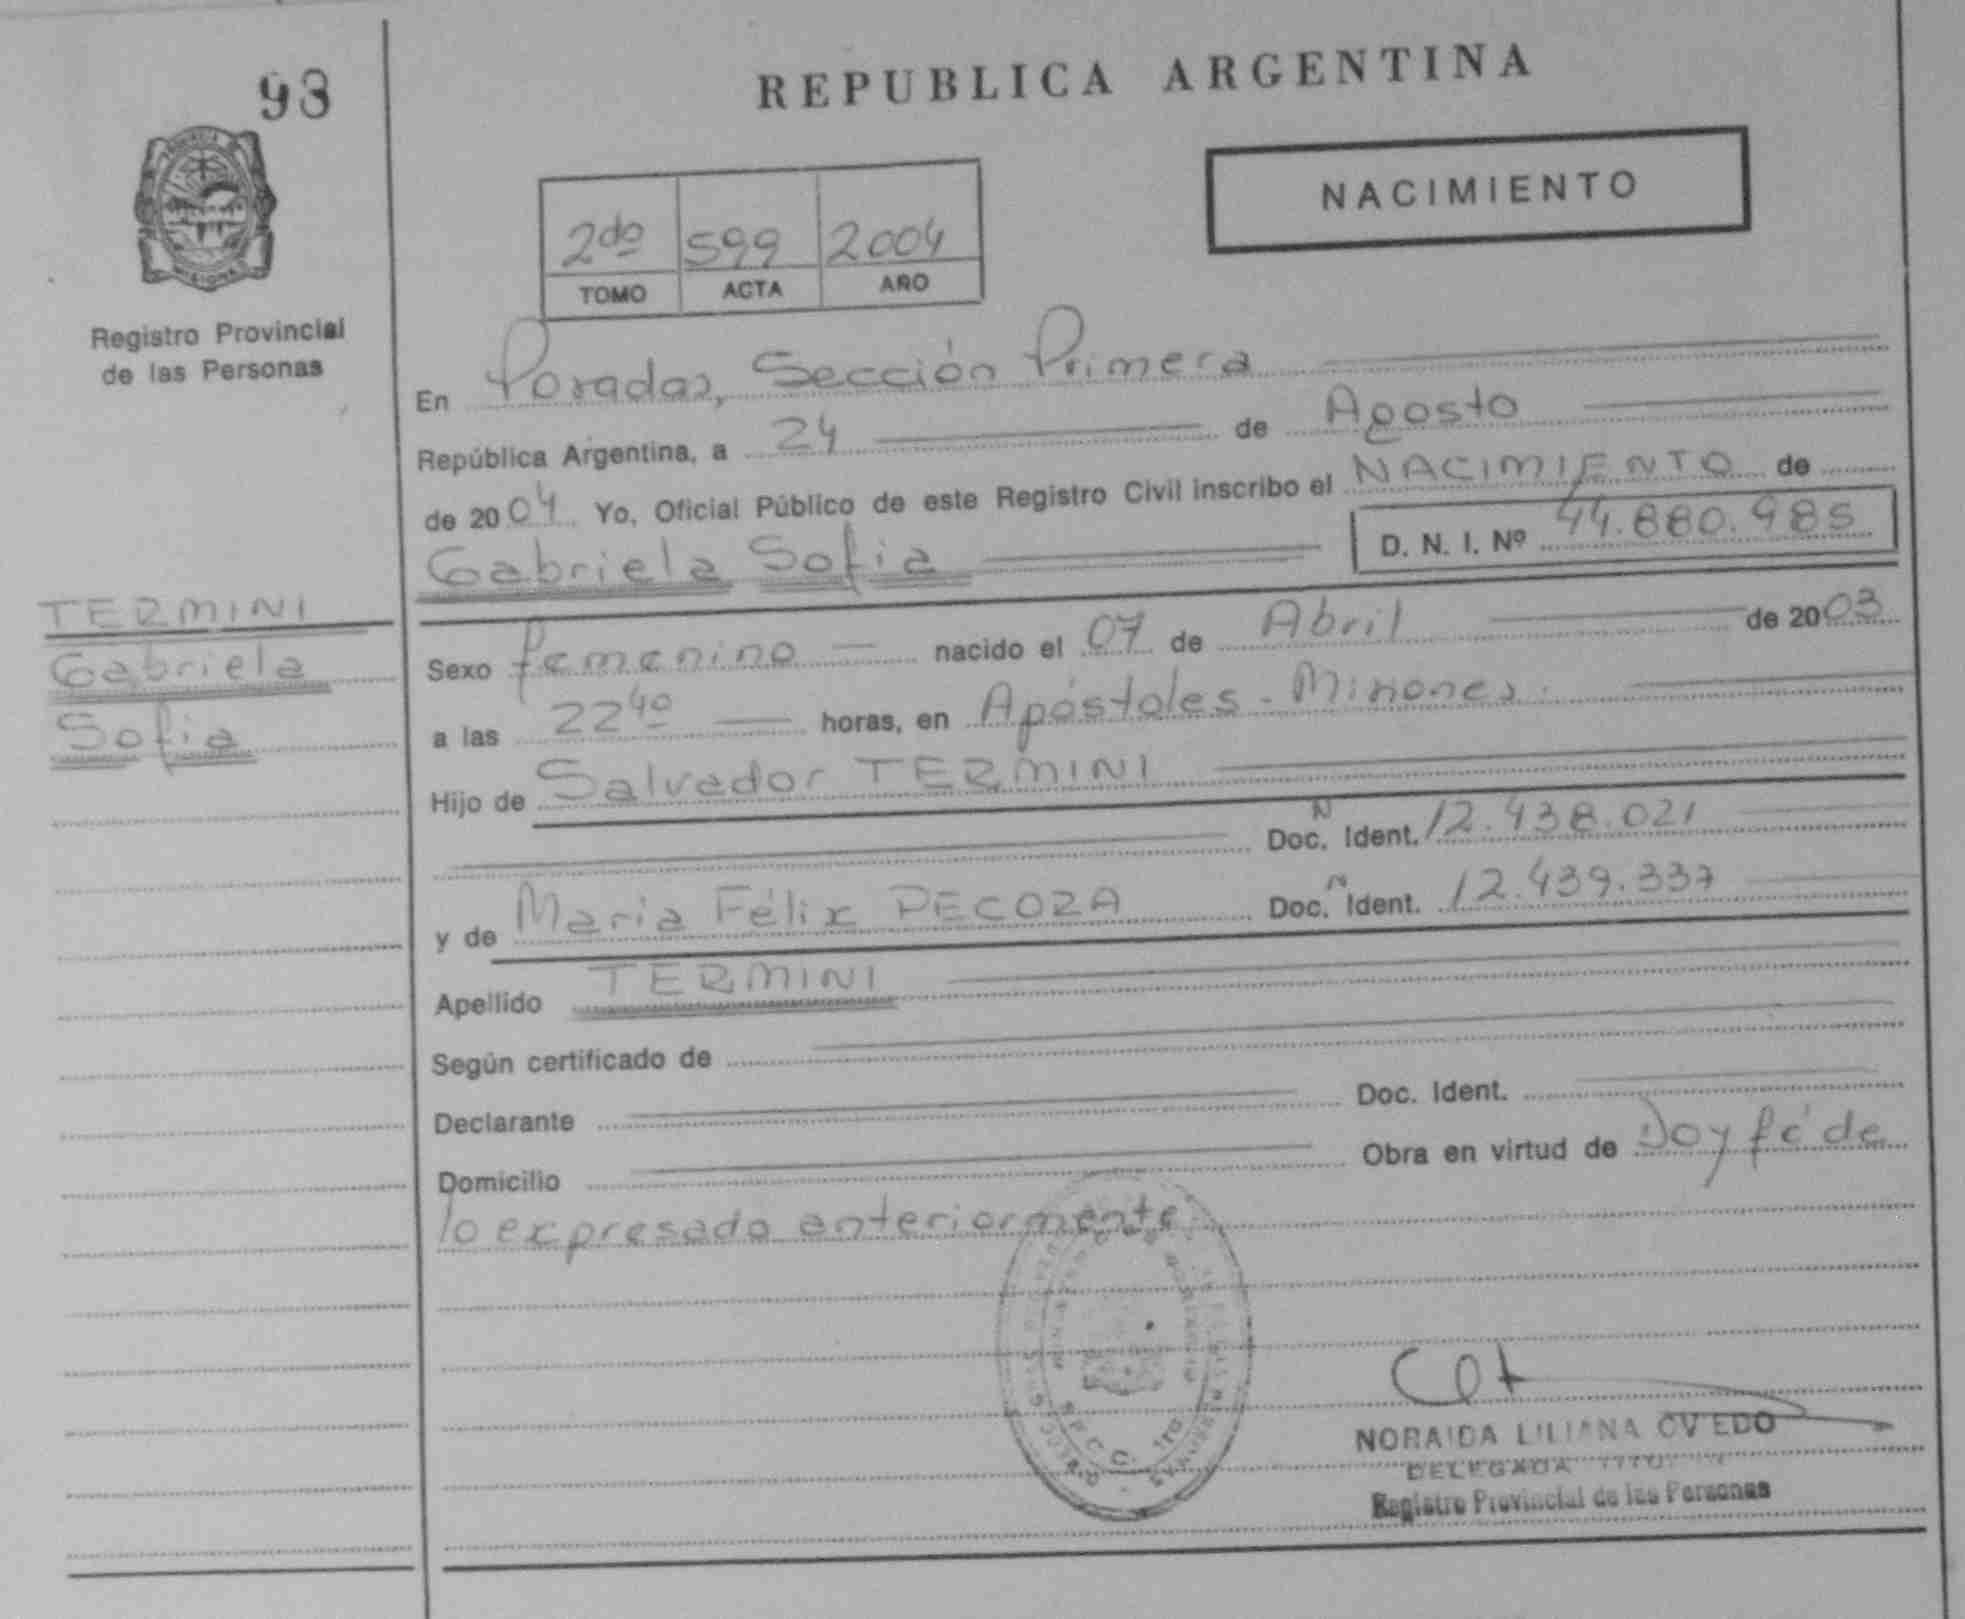 93
REPUBLICA ARGENTINA
NACIMIENTO
2do 599 2004
TOMO ACTA AÑO
Registro Provincial
de las Personas
En Posadas, Sección Primera
República Argentina, a 24 de Agosto
de 2004 Yo, Oficial Público de este Registro Civil inscribo el NACIMIENTO de
Gabriela Sofia D. N. I. Nº 44.880.985
TERMINI
Gabriela
Sofia
Sexo femenino nacido el 07 de Abril de 2003
a las 22 40 horas, en Apóstoles - Misiones.
Hijo de Salvador TERMINI
Doc. N Ident. 12.438.021
y de Maria Félix PECOZA Doc. N Ident. 12.439.337
Apellido TERMINI
Según certificado de
Declarante Doc. Ident.
Domicilio Obra en virtud de Doy fé de
lo expresado anteriormente.
NORAIDA LILIANA OVIEDO
DELEGADA
Registro Provincial de las Personas